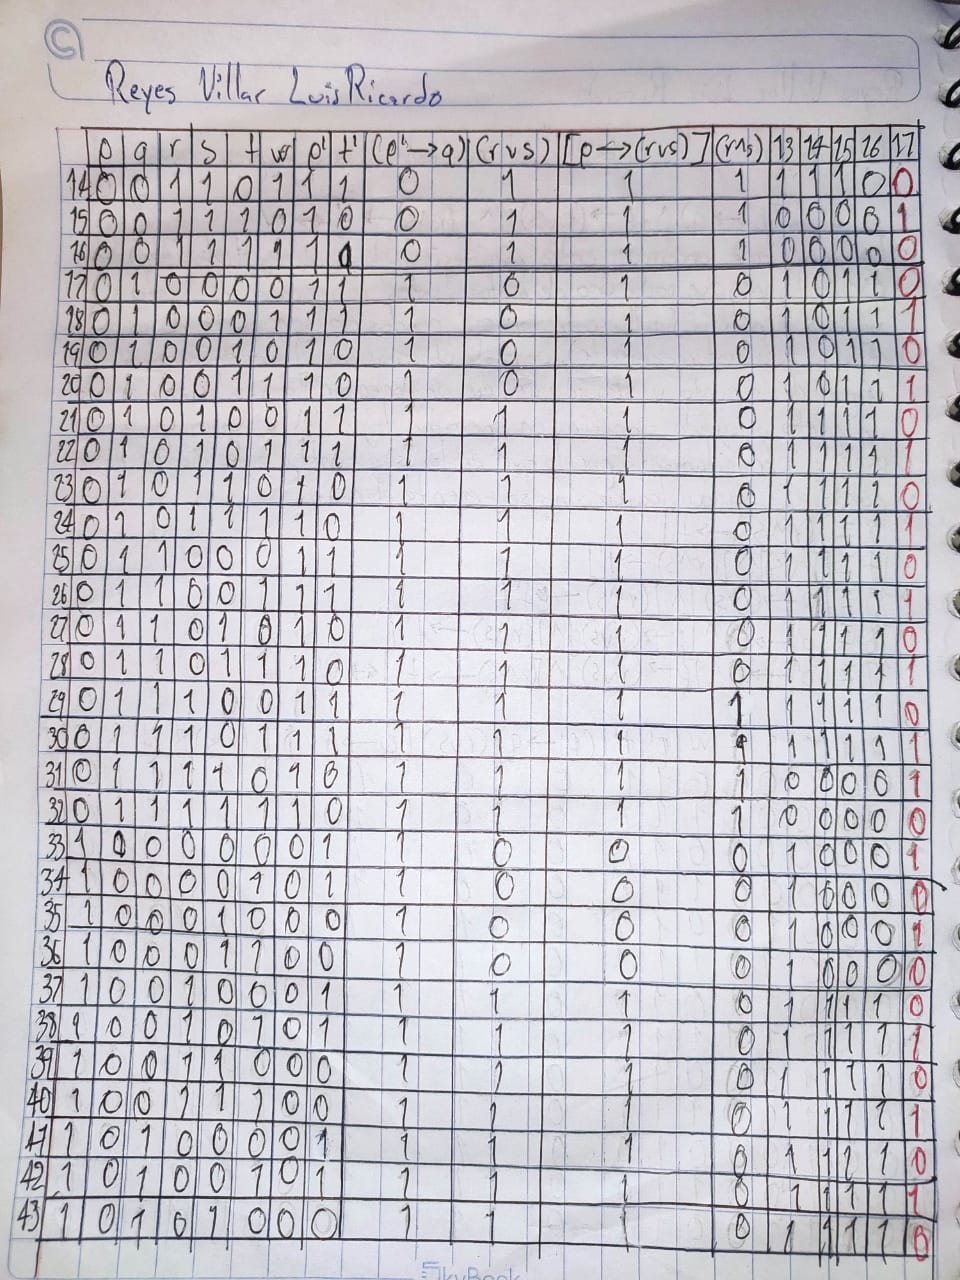 Reyes Villar Luis Ricardo
p q r s t w p' t' (p'→q) (r∨s) [p→(r∨s)] (r∧s) 13 14 15 16 17
14 0 0 1 1 0 1 1 1 0 1 1 1 1 1 1 0 0
15 0 0 1 1 1 0 1 0 0 1 1 1 0 0 0 0 1
16 0 0 1 1 1 1 1 0 0 1 1 1 0 0 0 0 0
17 0 1 0 0 0 0 1 1 1 0 1 0 1 0 1 1 0
18 0 1 0 0 0 1 1 1 1 0 1 0 1 0 1 1 1
19 0 1 0 0 1 0 1 0 1 0 1 0 1 0 1 1 0
20 0 1 0 0 1 1 1 0 1 0 1 0 1 0 1 1 1
21 0 1 0 1 0 0 1 1 1 1 1 0 1 1 1 1 0
22 0 1 0 1 0 1 1 1 1 1 1 0 1 1 1 1 1
23 0 1 0 1 1 0 1 0 1 1 1 0 1 1 1 1 0
24 0 1 0 1 1 1 1 0 1 1 1 0 1 1 1 1 1
25 0 1 1 0 0 0 1 1 1 1 1 0 1 1 1 1 0
26 0 1 1 0 0 1 1 1 1 1 1 0 1 1 1 1 1
27 0 1 1 0 1 0 1 0 1 1 1 0 1 1 1 1 0
28 0 1 1 0 1 1 1 0 1 1 1 0 1 1 1 1 1
29 0 1 1 1 0 0 1 1 1 1 1 1 1 1 1 1 0
30 0 1 1 1 0 1 1 1 1 1 1 1 1 1 1 1 1
31 0 1 1 1 1 0 1 0 1 1 1 1 0 0 0 0 1
32 0 1 1 1 1 1 1 0 1 1 1 1 0 0 0 0 0
33 1 0 0 0 0 0 0 1 1 0 0 0 1 0 0 0 1
34 1 0 0 0 0 1 0 1 1 0 0 0 1 0 0 0 0
35 1 0 0 0 1 0 0 0 1 0 0 0 1 0 0 0 1
36 1 0 0 0 1 1 0 0 1 0 0 0 1 0 0 0 0
37 1 0 0 1 0 0 0 1 1 1 1 0 1 1 1 1 0
38 1 0 0 1 0 1 0 1 1 1 1 0 1 1 1 1 1
39 1 0 0 1 1 0 0 0 1 1 1 0 1 1 1 1 0
40 1 0 0 1 1 1 0 0 1 1 1 0 1 1 1 1 1
41 1 0 1 0 0 0 0 1 1 1 1 0 1 1 1 1 0
42 1 0 1 0 0 1 0 1 1 1 1 0 1 1 1 1 1
43 1 0 1 0 1 0 0 0 1 1 1 0 1 1 1 1 0
SkyBook